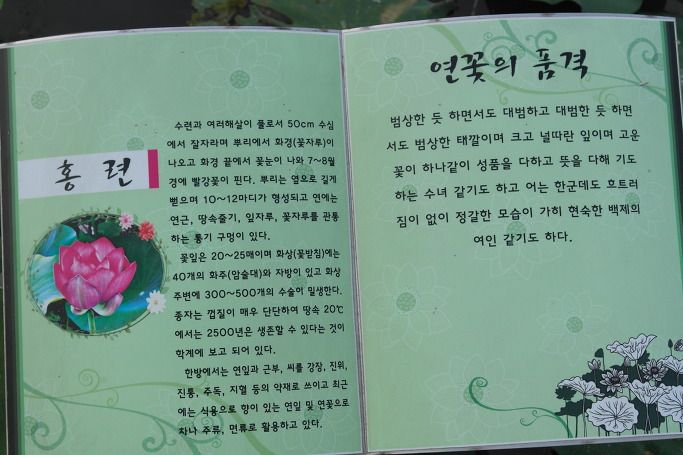 홍 련
수련과 여러해살이 풀로서 50cm 수심
에서 잘자라며 뿌리에서 화경(꽃자루)이
나오고 화경 끝에서 꽃눈이 나와 7~8월
경에 빨강꽃이 핀다. 뿌리는 옆으로 길게
뻗으며 10~12마디가 형성되고 연에는
연근, 땅속줄기, 잎자루, 꽃자루를 관통
하는 통기 구멍이 있다.
꽃잎은 20~25매이며 화상(꽃받침)에는
40개의 화주(암술대)와 자방이 있고 화상
주변에 300~500개의 수술이 밀생한다.
종자는 껍질이 매우 단단하여 땅속 20℃
에서는 2500년은 생존할 수 있다는 것이
학계에 보고 되어 있다.
한방에서는 연잎과 근부, 씨를 강장, 진위,
진통, 주독, 지혈 등의 약재로 쓰이고 최근
에는 식용으로 향이 있는 연잎 및 연꽃으로
차나 주류, 면류로 활용하고 있다.
연꽃의 품격
범상한 듯 하면서도 대범하고 대범한 듯 하면
서도 범상한 태깔이며 크고 널따란 잎이며 고운
꽃이 하나같이 성품을 다하고 뜻을 다해 기도
하는 수녀 같기도 하고 어느 한군데도 흐트러
짐이 없이 정갈한 모습이 가히 현숙한 백제의
여인 같기도 하다.